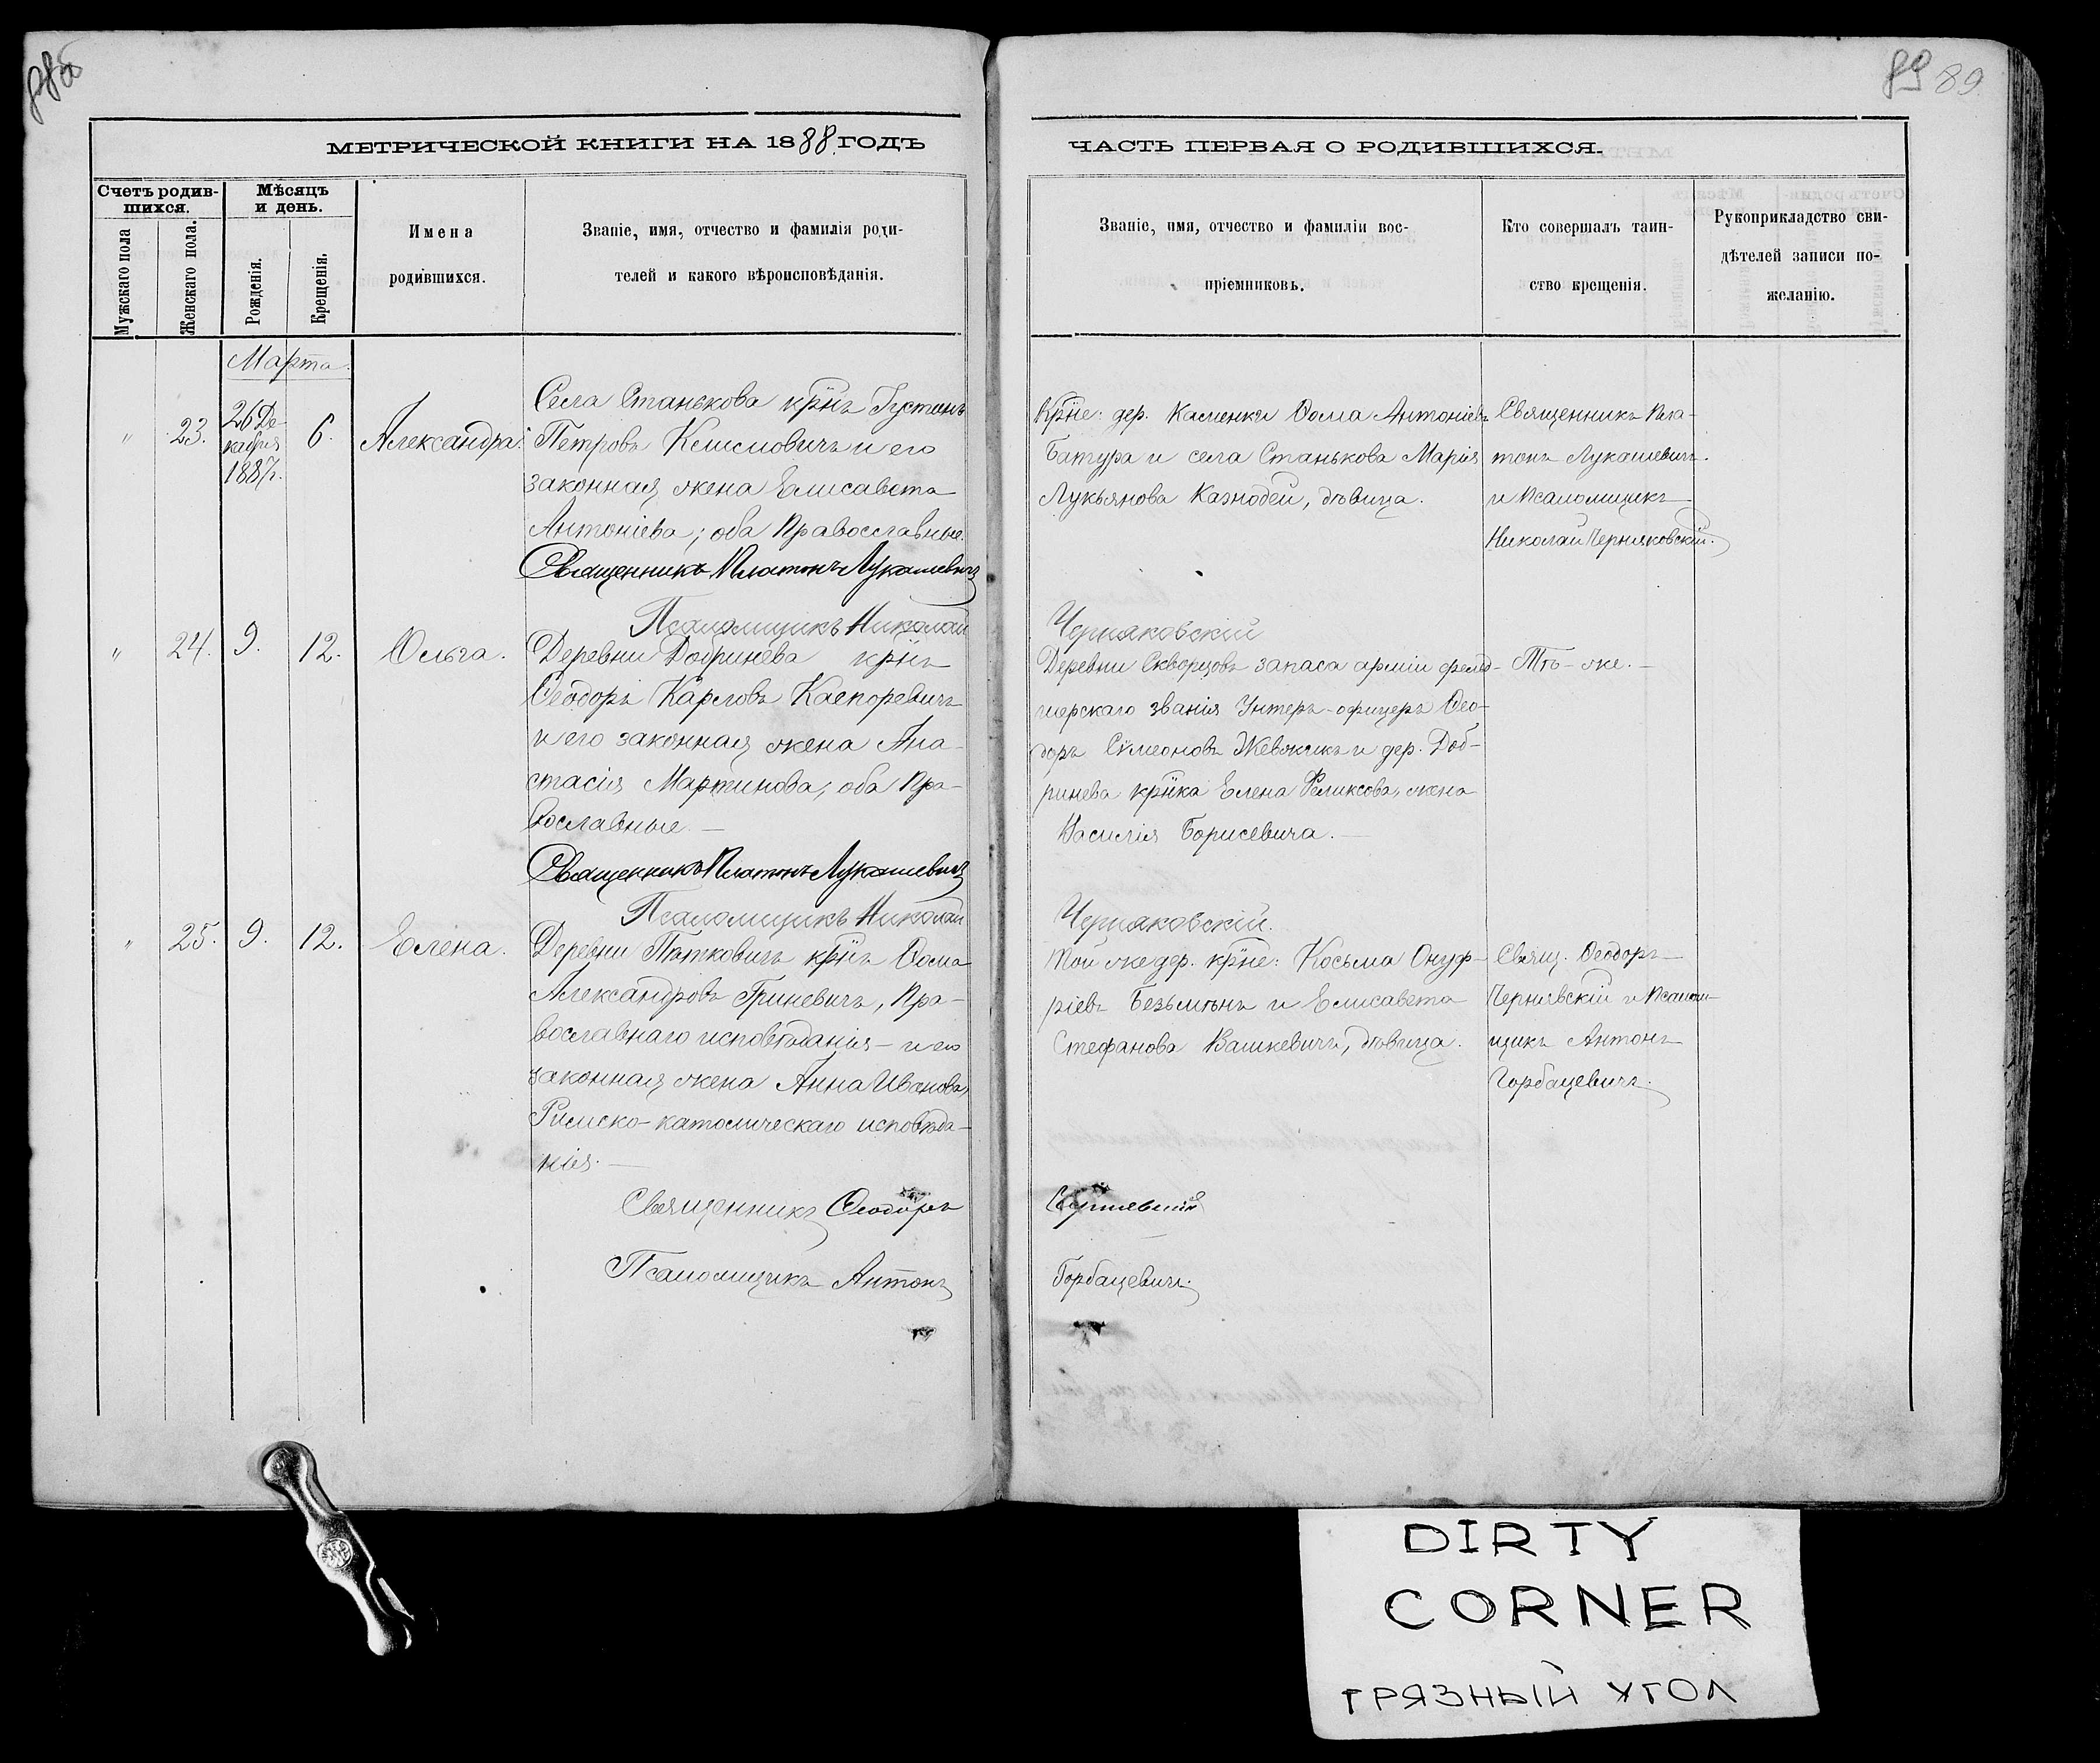 88об
89 89.
МЕТРИЧЕСКОЙ КНИГИ НА 1888 ГОДЪ
Счетъ родив-
шихся.
Мѣсяцъ
и день.
Мужскаго пола
Женскаго пола.
Рожденія.
Крещенія.
Имена
родившихся.
Званіе, имя, отчество и фамилія роди-
телей и какого вѣроисповѣданія.
Марта.
"
23.
26 Де-
кабря
1887г.
6.
Александра.
Села Станькова крн̃ъ Густинъ
Петровъ и его
законная жена Елисавета
Антоніева; оба православные.
Священникъ Платонъ Лукашевичъ
Псаломщикъ Николай
"
24.
9.
12.
Ольга.
Деревни Добринева крн̃ъ
Ѳеодоръ Карловъ Каспоревичъ
и его законная жена Ана-
стасія Мартинова, оба пра-
вославные. —
Священникъ Платонъ Лукашевичъ
Псаломщикъ Николай
"
25.
9.
12.
Елена.
Деревни Пятковичъ крн̃ъ Ѳома
Александровъ Гриневичъ, пра-
вославнаго исповѣданія – и его
законная жена Анна Иванова,
Римско-католическаго исповѣда-
нія. —
Священникъ Ѳеодоръ
Псаломщикъ Антонъ
ЧАСТЬ ПЕРВАЯ О РОДИВШИХСЯ.
Званіе, имя, отчество и фамиліи вос-
пріемниковъ.
Кто совершалъ таин-
ство крещенія.
Рукоприкладство сви-
дѣтелей записи по-
желанію.
Крн̃е: дер. Каменки Ѳома Антоніевъ
Батура и села Станькова Марія
Лукьянова Казнодей, дѣвица.
Священникъ Пла-
тонъ Лукашевичъ
и псаломщикъ
Николай Черняковскій.
Черняковскій
Деревни Скворцовъ запаса арміи фельд-
шерскаго званія Унтеръ-офицеръ Ѳео-
доръ Сѵмеоновъ Жевжикъ и дер. Доб-
ринева крн̃ка Елена Феликсова, жена
Василія Борисевича. —
Тѣ-же. —
Черняковскій.
Той же дер. крн̃е: Косьма Онуф-
ріевъ Безьмѣнъ и Елисавета
Стефанова Вашкевичъ, дѣвица.
Свящ. Ѳеодоръ
Чернявскій и псалом-
щикъ Антонъ
Горбацевичъ.
Чернявскій
Горбацевичъ.
DIRTY
CORNER
ГРЯЗНЫЙ УГОЛ